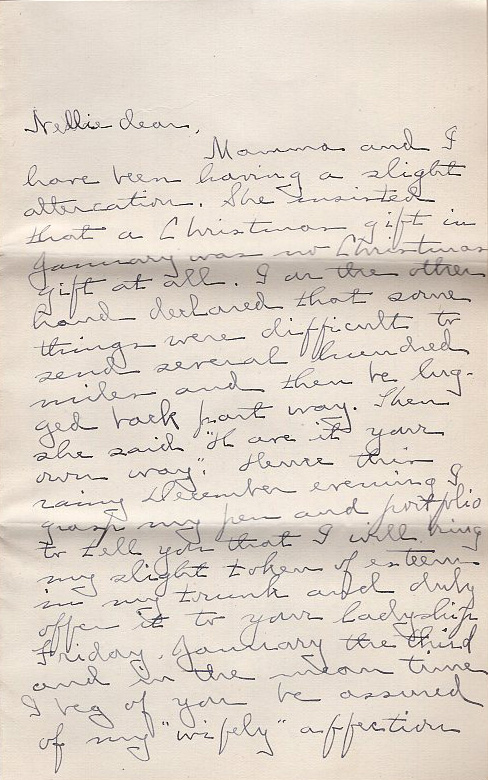 Nellie dear,
Mamma and I
have been having a slight
altercation. She insisted
that a Christmas gift in
January was no Christmas
gift at all. I on the other
hand declared that some
things were difficult to
send several hundred
miles and then be lug-
ged back part way. Then
she said "Have it your
own way". Hence this
rainy December evening I
grasp my pen and portfolio
to tell you that I will bring
my slight token of esteem
in my trunk and duly
offer it to your ladyship
Friday January the third
and in the mean time
I beg of you be assured
of my "wifely" affection